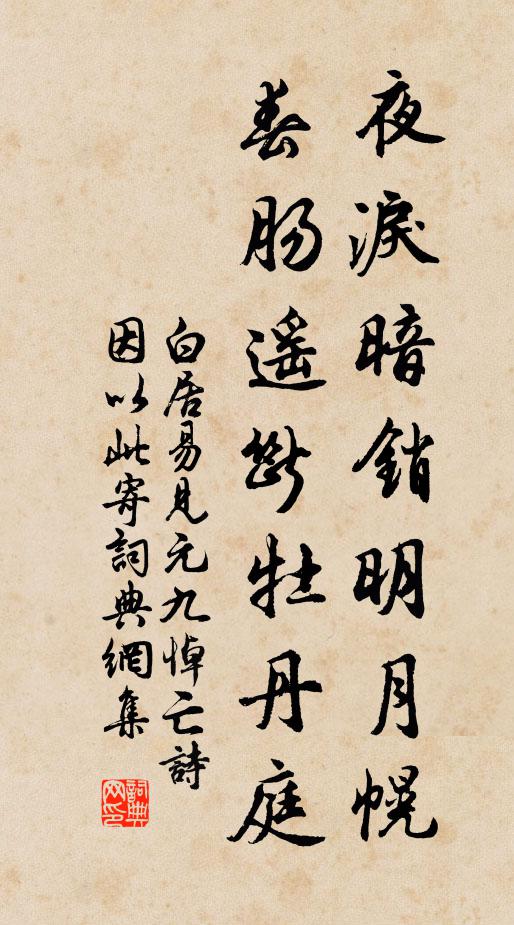 夜淚暗銷明月幌
春腸遥斷牡丹庭
白居易見元九悼亡詩
因以此寄詞典網集
詞典
网印